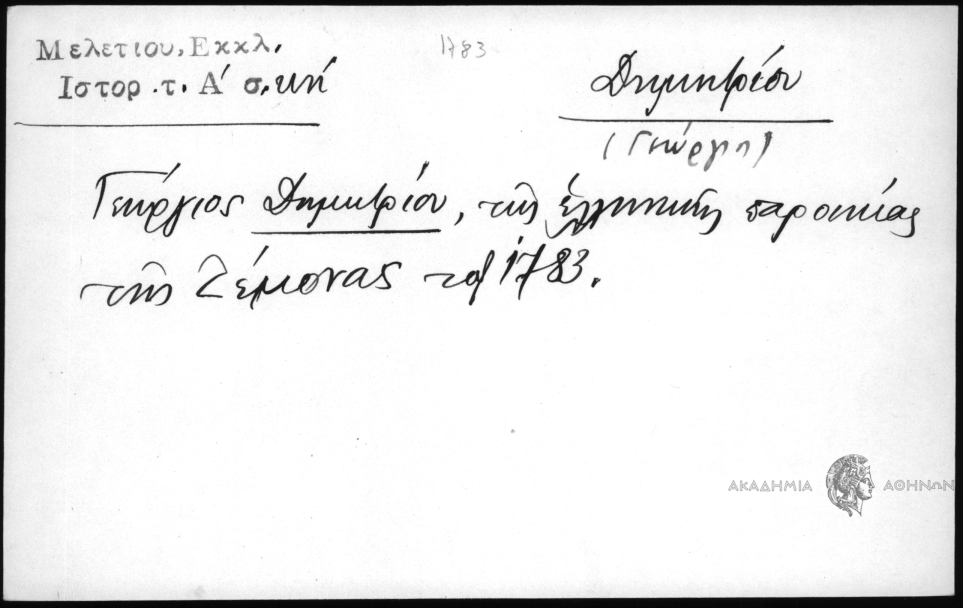 Μελετιου, Εκκλ.
Ιστορ. τ. Α' σ. κή
1783
Δημητρίου
(Γεώργιο)
Γεώργιος Δημητρίου, τῆς ἑλληνικῆς παροικίας
τῆς Ζέμονας τοῦ 1783.
ΑΚΑΔΗΜΙΑ ΑΘΗΝΩΝ